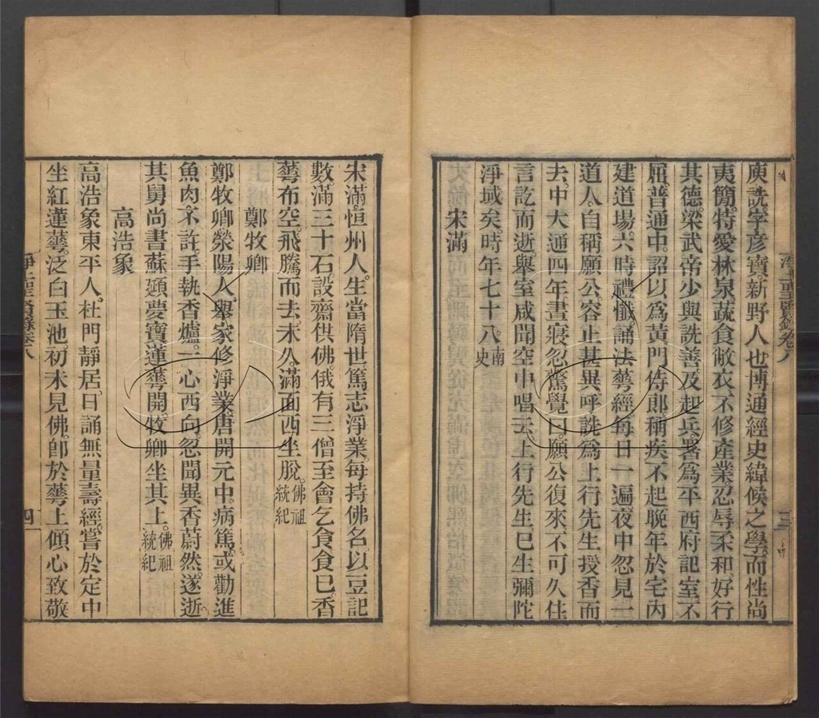 庾詵字彥寶新野人也博通經史緯候之學而性尚
夷簡特愛林泉蔬食敝衣不修產業忍辱柔和好行
其德梁武帝少與詵善及起兵署為平西府記室不
屈普通中詔以為黃門侍郎稱疾不起晚年於宅內
建道場六時禮懺誦法華經每日一遍夜中忽見一
道人自稱願公容止甚異呼詵為上行先生授香而
去中大通四年晝寢忽驚覺曰願公復來不可久住
言訖而逝舉室咸聞空中唱云上行先生已生彌陀
淨域矣時年七十八南史
宋滿
宋滿恒州人生當隋世篤志淨業每持佛名以豆記
數滿三十石設齋供佛俄有三僧至會乞食食已香
華布空飛騰而去未久滿面西坐脫佛祖統紀
鄭牧卿
鄭牧卿滎陽人舉家修淨業唐開元中病篤或勸進
魚肉不許手執香爐一心西向忽聞異香蔚然遂逝
其舅尚書蘇頲夢寶蓮華開牧卿坐其上佛祖統紀
高浩象
高浩象東平人杜門靜居日誦無量壽經嘗於定中
坐紅蓮華泛白玉池初未見佛卽於華上傾心致敬
淨土聖賢錄卷八
四